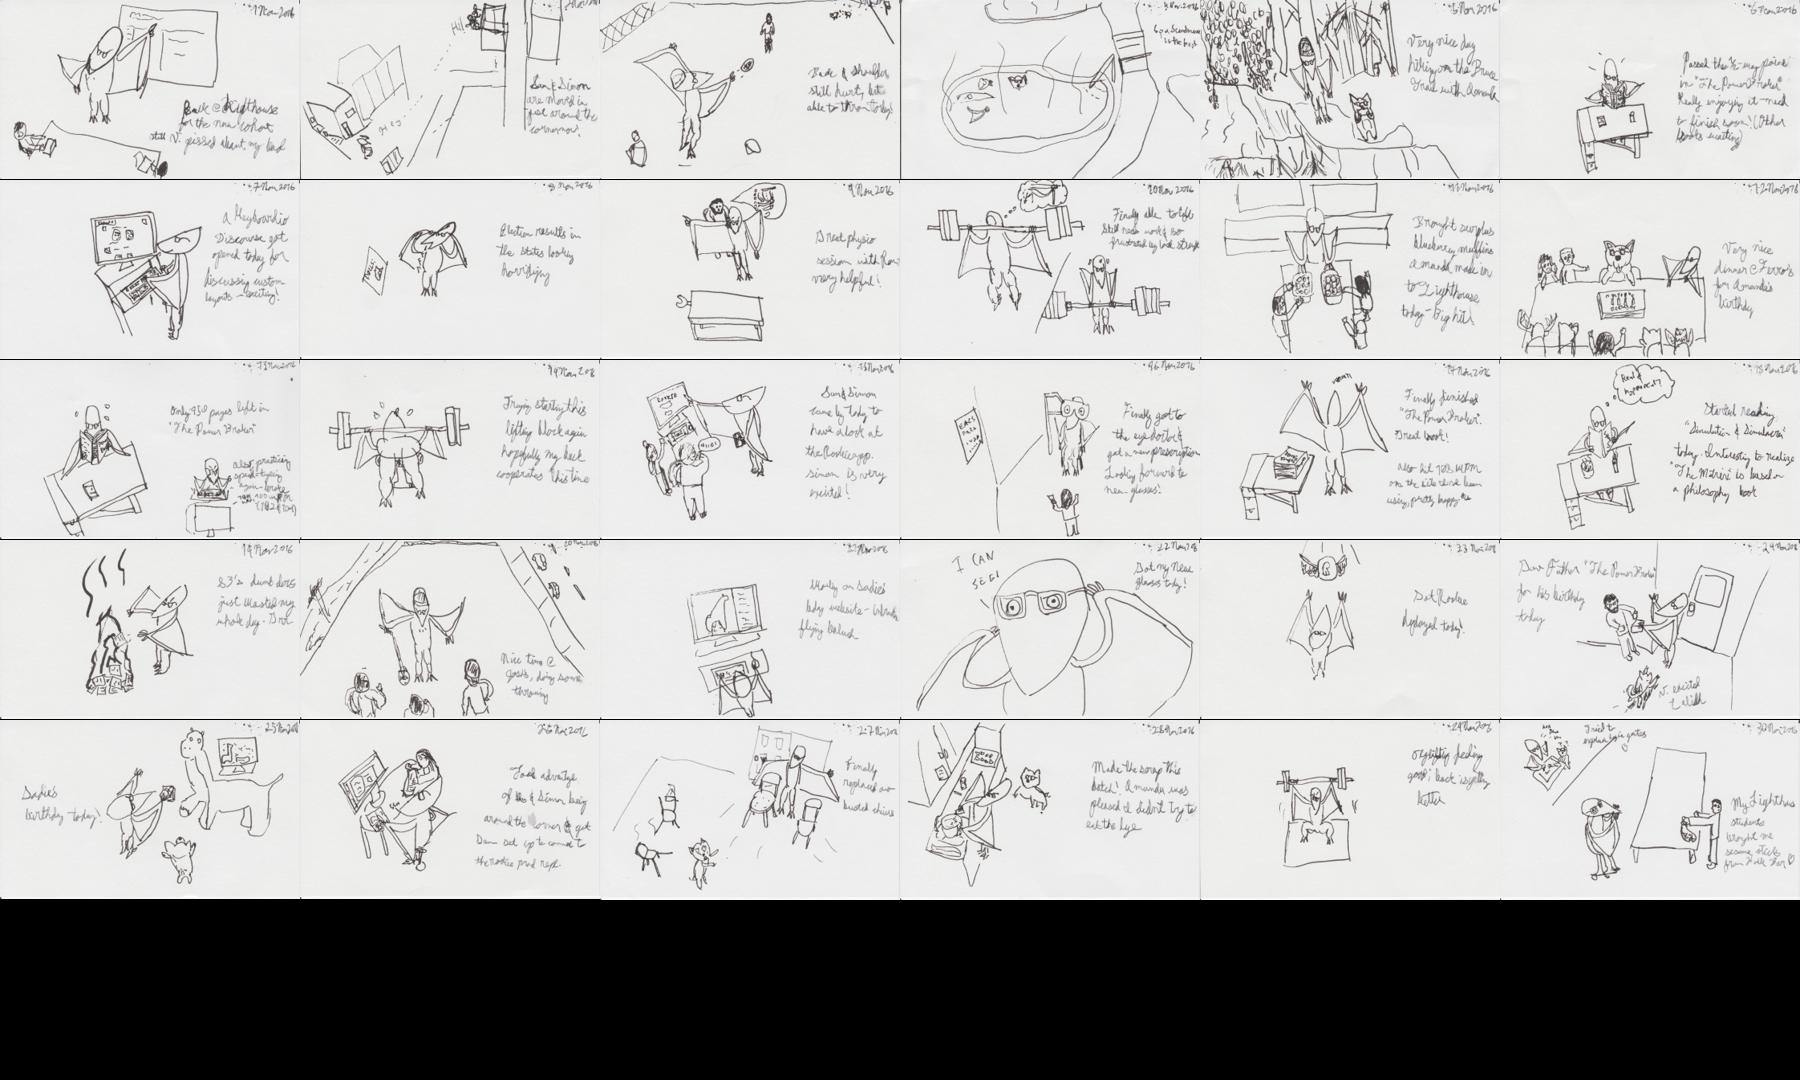 1 Nov 2016
Back @ Lighthouse
for the new cohort
still N. pissed about my back
Hi!
Hey
Sun & Simon
are moved in
just around the
corner now!
Back & shoulder
still hurt, but
able to throw today!
5 Nov 2016
Very nice day
hiking on the Bruce
Trail with Amanda
6 Nov 2016
Passed the ½-way point
in "The Power Broker"
Really enjoying it - need
to finish soon! (Other
books waiting)
7 Nov 2016
A Keyboardio
Discourse got
opened today for
discussing custom
layouts - exciting!
8 Nov 2016
Election results in
the states looking
horrifying
9 Nov 2016
Great physio
session with
very helpful!
10 Nov 2016
Finally able to lift
Still need work & so
frustrated by lost strength
11 Nov 2016
Brought surplus
blueberry muffins
Amanda made in
to Lighthouse
today - Big hit!
12 Nov 2016
Very nice
dinner @ Ferro's
for Amanda's
birthday
13 Nov 2016
Only 450 pages left in
"The Power Broker"
also, practicing
speed-typing
again
14 Nov 2016
Trying starting this
lifting block again
hopefully my back
cooperates this time
15 Nov 2016
Sun & Simon
came by today to
have a look at
the Rookie app.
Simon is very
excited!
16 Nov 2016
Finally got to
the eye doctor &
got a new prescription
Looking forward to
new glasses!
17 Nov 2016
Finally finished
"The Power Broker".
Great book!
also hit 103 WPM
on the site I've been
using, pretty happy
18 Nov 2016
Real &
not real?
Started reading
"Simulation & Simulacra"
today. Interesting to realize
"The Matrix" is based on
a philosophy book
19 Nov 2016
S3's dumb docs
just wasted my
whole day. Grr
20 Nov 2016
Nice time @
goalts, doing some
throwing
21 Nov 2016
Working on Sadie's
bday website -
flying
22 Nov 2016
I CAN
SEE!
Got my new
glasses today!
23 Nov 2016
Got Rookie
deployed today!
24 Nov 2016
Gave Father "The Power Broker"
for his birthday
today
N. excited
25 Nov 2016
Sadie's
birthday today!
26 Nov 2016
Took advantage
of Sun & Simon being
around the corner & got
Sun set up to commit to
the rookie prod repo.
27 Nov 2016
Finally
replaced our
busted chairs
28 Nov 2016
Made the soap this
batch! Amanda was
pleased I didn't try to
eat the lye
29 Nov 2016
lifting feeling
good; back is getting
better
30 Nov 2016
Tried to
explain logic gates
My Lighthouse
students
brought me
sesame sticks
from Bulk Barn